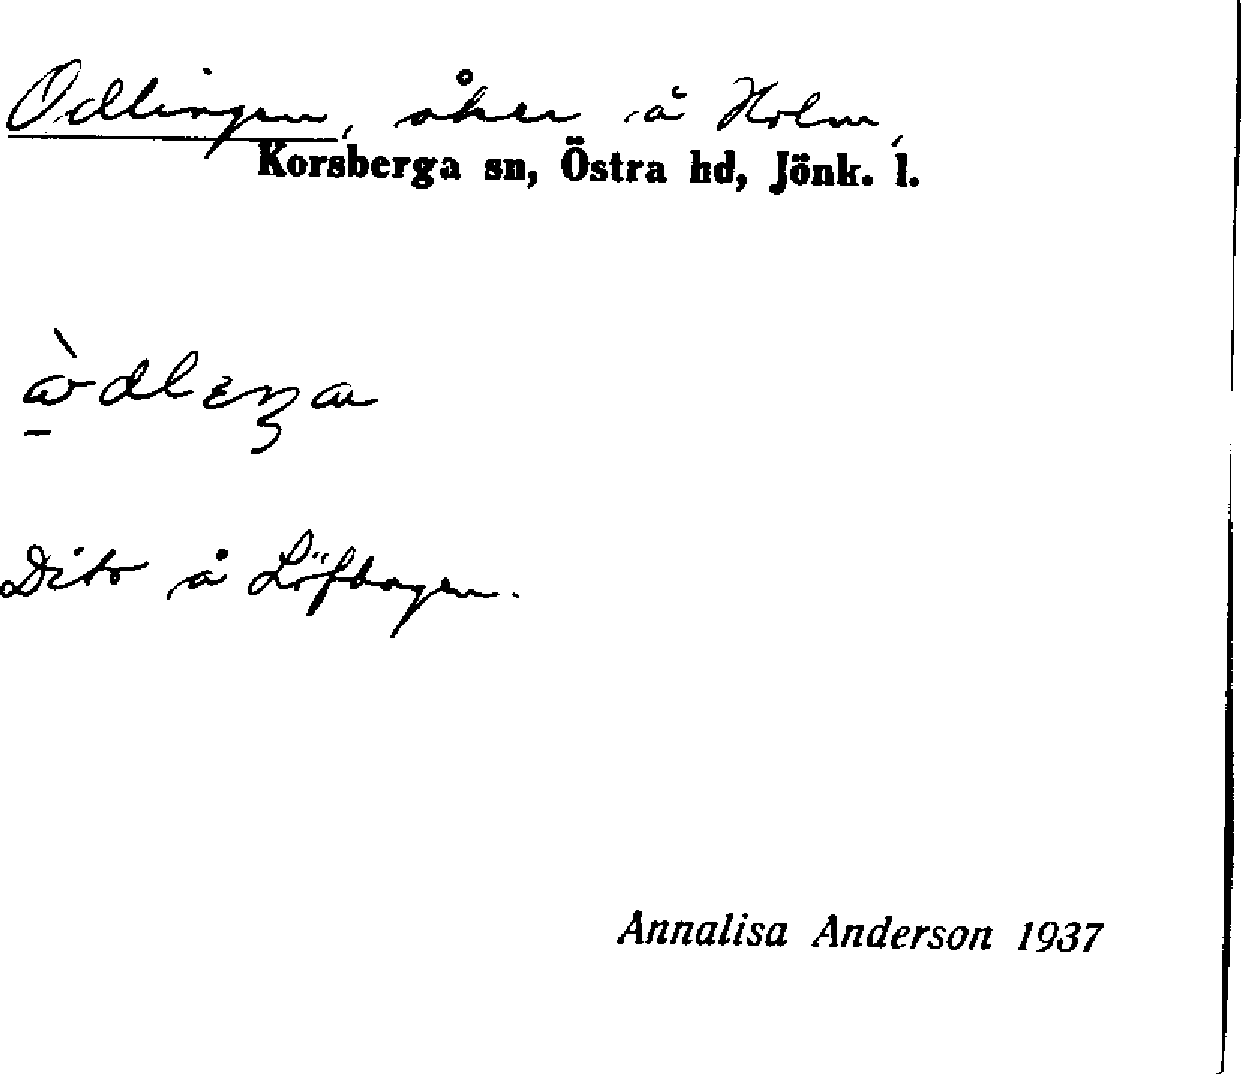 Odlingen, åker å Holm,
Korsberga sn, Östra hd, Jönk. l.
Dito å Löfhagen.
Annalisa Anderson 1937